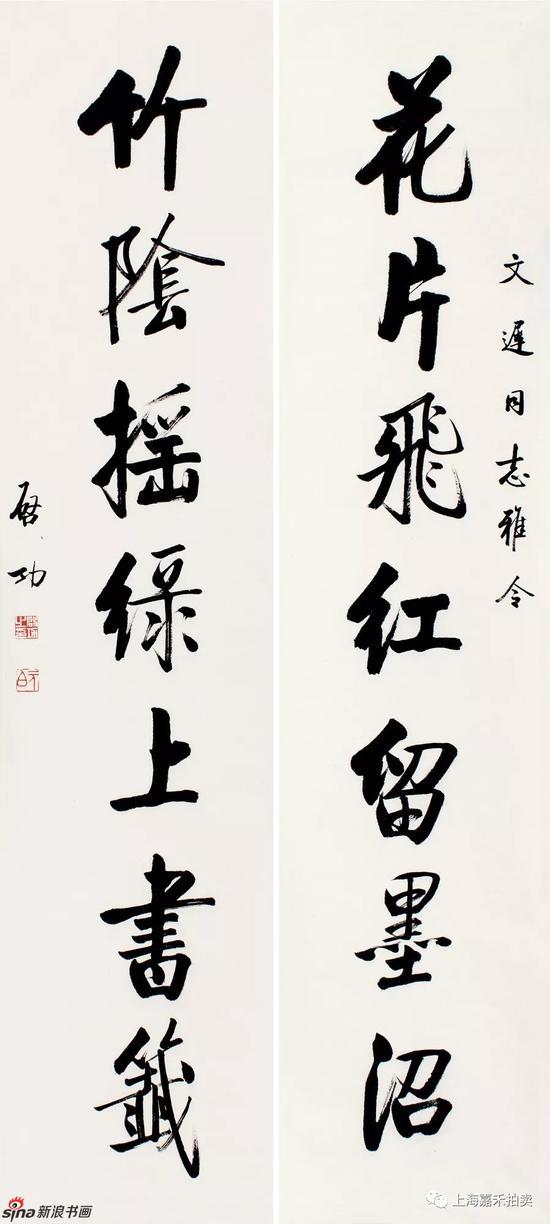 文遲同志雅令
花片飛红留墨沼
竹陰摇绿上書籤
啟功
sina新浪书画
上海嘉禾拍卖